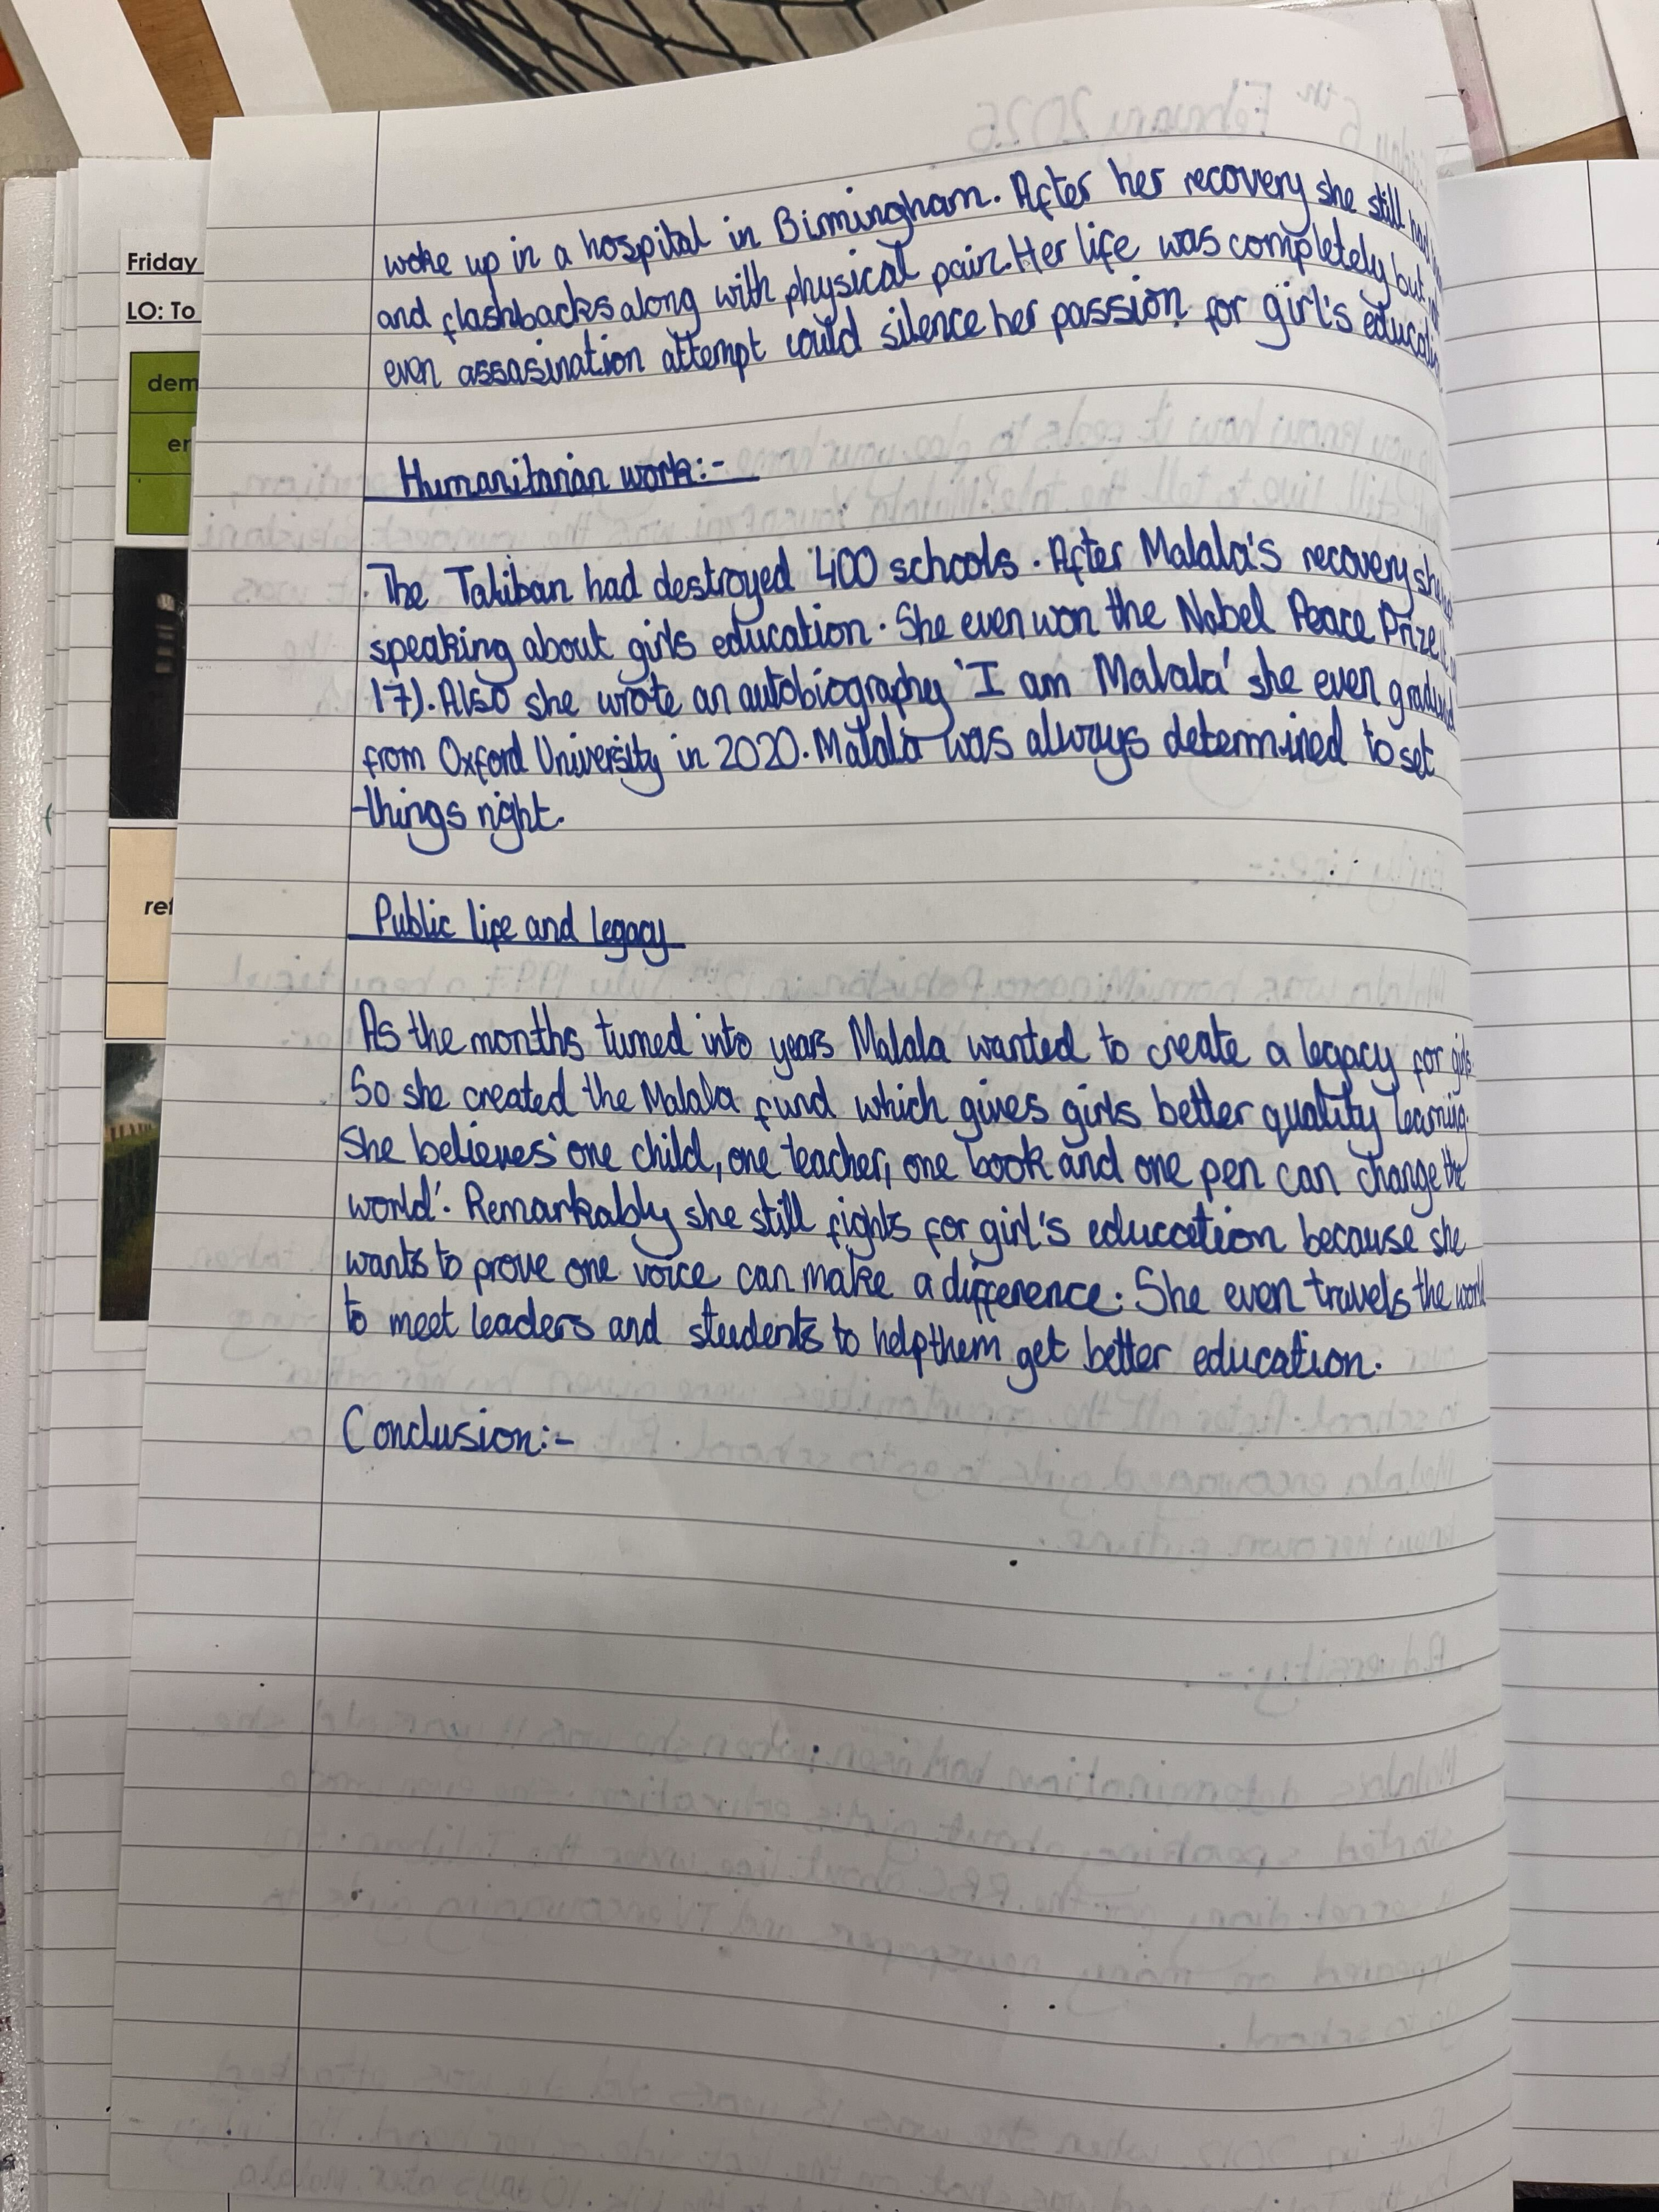 Friday
LO: To
dem
er
ref
woke up in a hospital in Birmingham. After her recovery she still had
and flashbacks along with physical pain. Her life was completely but not
even assasination attempt could silence her passion for girl's
Humanitarian work:-
The Taliban had destroyed 400 schools. After Malala's recovery she
speaking about girls education. She even won the Nobel Peace Prize
17). Also she wrote an autobiography 'I am Malala' she even
from Oxford University in 2020. Malala was always determined to set
things right.
Public life and legacy
As the months turned into years Malala wanted to create a legacy for girls
So she created the Malala fund which gives girls better quality learning.
She believes 'one child, one teacher, one book and one pen can change the
world'. Remarkably she still fights for girl's education because she
wants to prove one voice can make a difference. She even travels the world
to meet leaders and students to help them get better education.
Conclusion:-